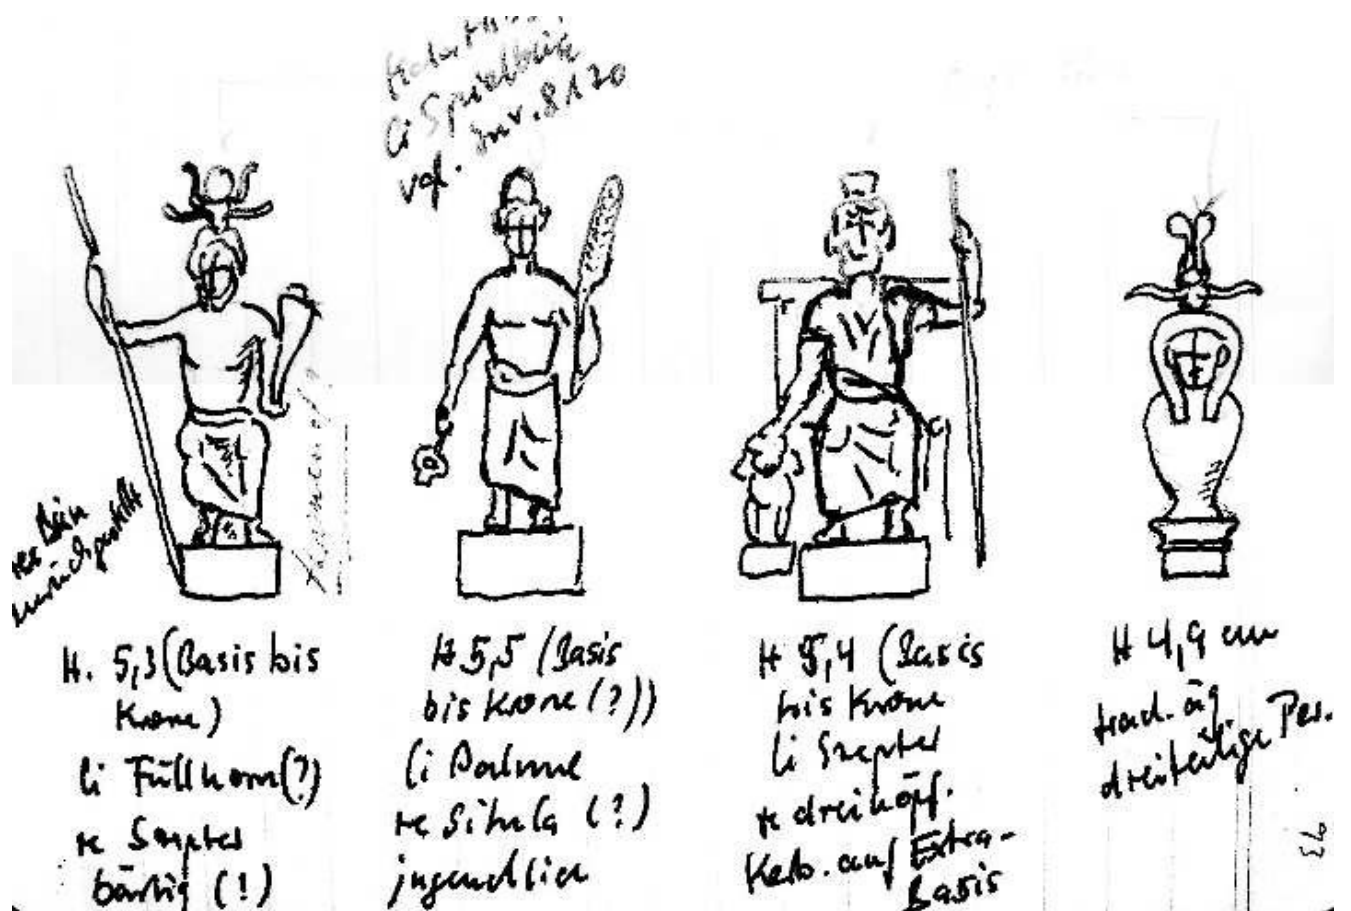 li Spielbein
vgl. Inv. 8120
res Bein
zurückgestellt
H. 5,3 (Basis bis
Krone)
li Füllhorn (?)
re Szepter
bärtig (!)
H 5,5 (Basis
bis Krone (?))
li Palme
re Situla (?)
jugendlich
H 5,4 (Basis
bis Krone
li Szepter
re dreiköpf.
Kerb. auf Extra-
Basis
H 4,9 cm
trad. äg
dreiteilige Per.
73